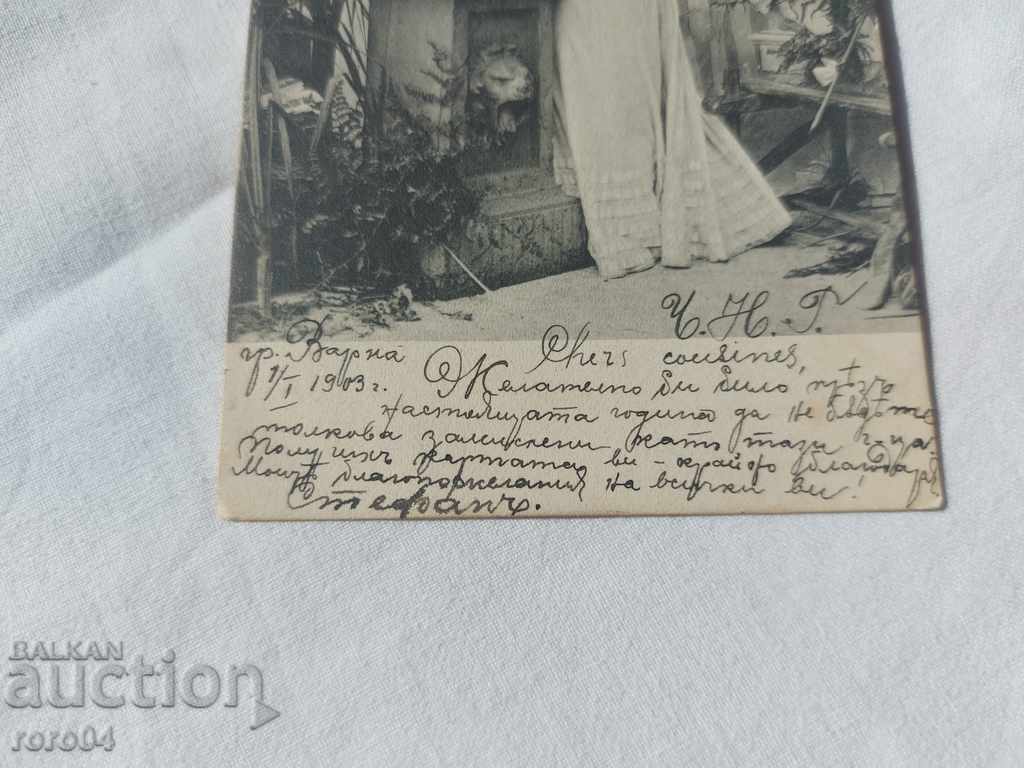 Ч. Н. Г.
гр. Варна
1/I 1903 г.
Chers cousines,
Желателно би било прѣзъ
настоящата година да не бѫдѣте
толкова залислени катъ тази г-ца
Получихъ картата ви - крайно благодаря,
Моитѣ благопожелания на всички ви!
Стефанъ.
BALKAN
auction
roro04